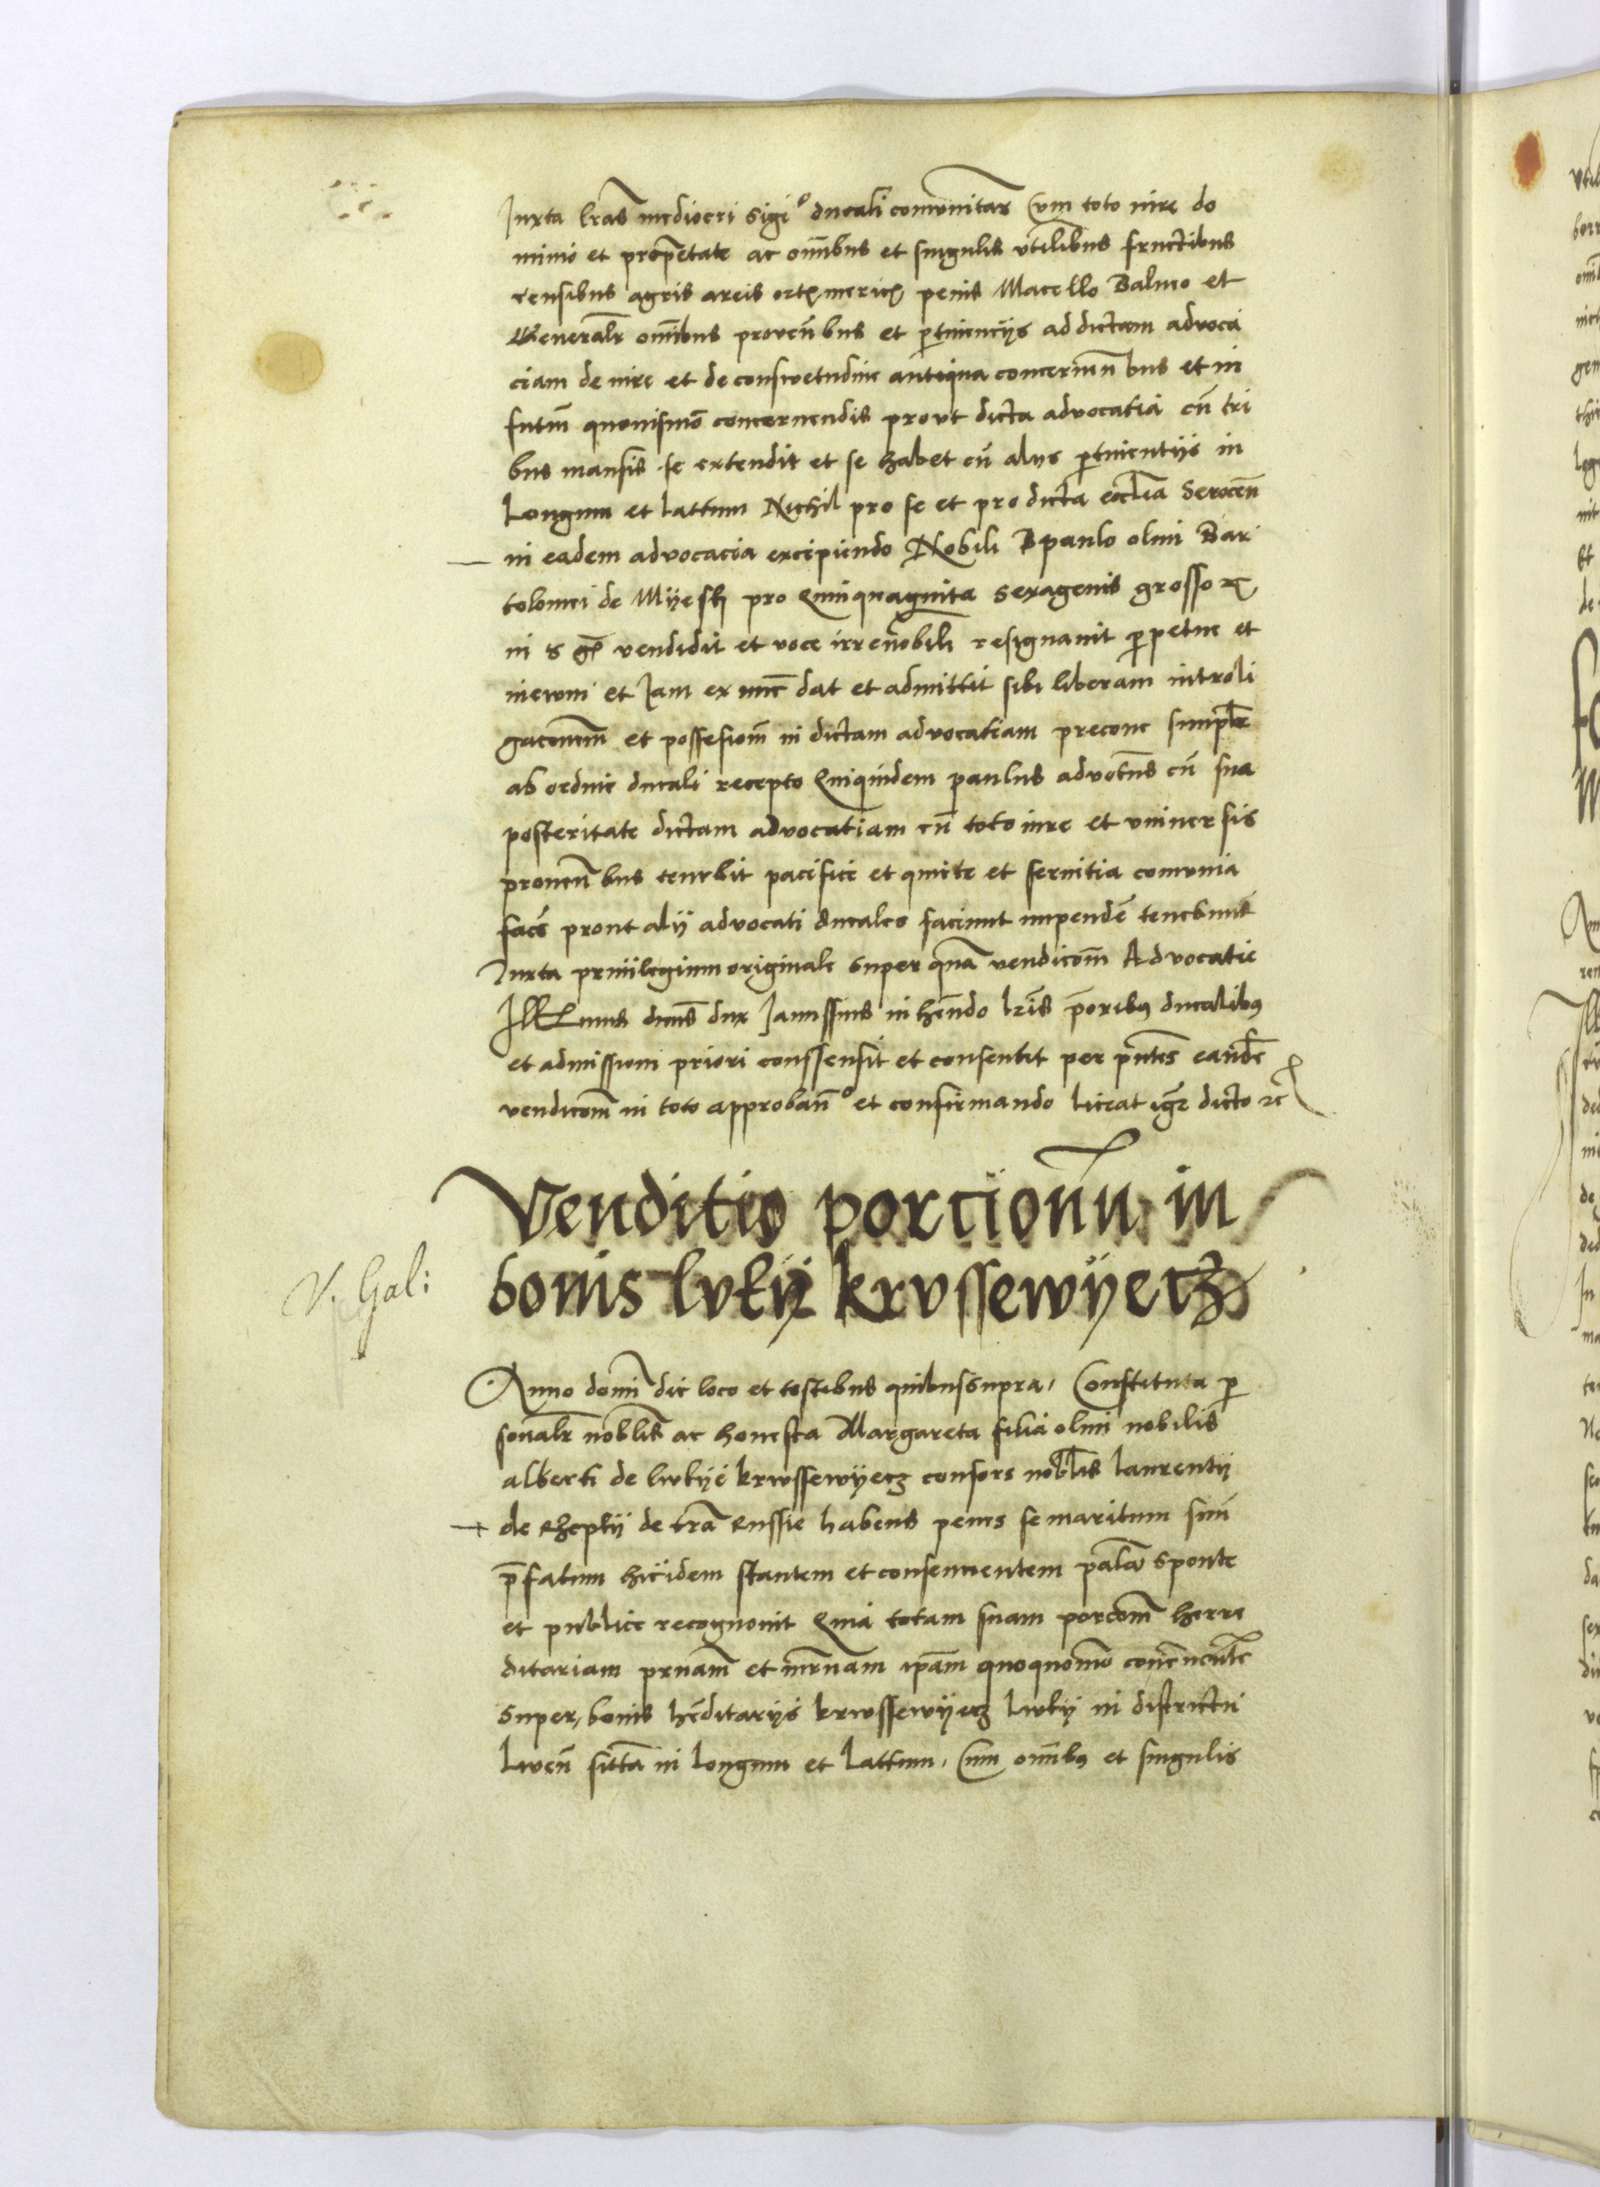 Juxta lras mediocri sigi° ducali comunitas Cum toto iure do
minio et propetate ac omibus et singulis utilibus fructibus
censibus agris areis penis Macello Balneo et
Generalr omibus provenbus et ptinencijs ad dictam advoca
ciam de iure et de conswetudine antiqua concernenbus et in
futm quouismo concernendis prout dicta advocatia cu tri
bus mansis se extendit et se habet cu alijs ptinentijs in
Longum et Lattum Nichil pro se et pro dicta ecclia Serocen
in eadem advocacia excipiendo Nobili paulo olim Bar
tolomei de pro Quinquaginta sexagenis grosso
in vendidit et voce irrevobili resignavit perpetue et
inewm et Jam ex nunc dat et admittit sibi liberam introli
gaconem et possesiom in dictam advocatiam simplr
ab ordine ducali recepto Quiquidem paulus advotus cu sua
posteritate dictam advocatiam cu toto iure et universis
provenbus tenebit pacifice et quiete et servitia comunia
faces prout alij advocati ducales faciunt impende tenebunt
Iuxta privilegium originale super qua vendicom Advocatie
dnus dux Janussius inhendo lris poribus ducalibus
et admissioni priori conssensit et consentit per pntes eande
vendicom in toto approban° et confirmando liceat igr dicto etc
Venditio porcionu in
bonis lvtij krvssewÿecz
V. Gal:
Anno domi die loco et testibus quibussupra, Constituta per
sonalr noblis ac honesta Margareta filia olim nobilis
alberti de lwtije krwssewÿecz consors noblis laurentij
de de tra Russie habens penes se maritum suu
pfatum hicidem stantem et consencientem palam sponte
et publice recognovit Quia totam suam porcom herre
ditariam prnam et mrnam ipam quoquomo convenente
super bonis hditarijs krwssewÿecz lwtij in districtu
Liwen sitta in longum et Lattum, Cum omibus et singulis